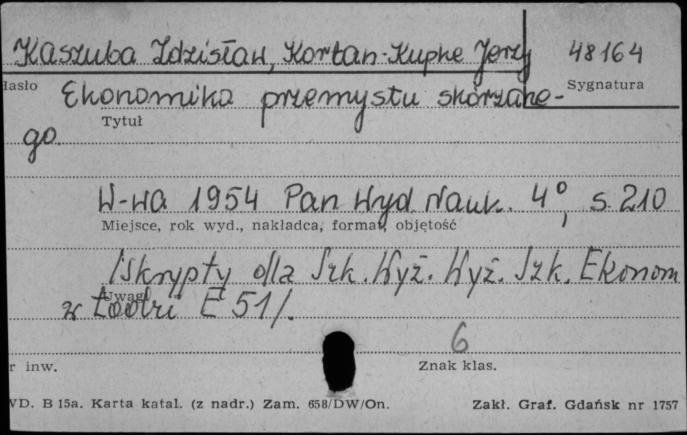 Kaszuba Zdzisław, Kortan-Kupke Jerzy 48164
Hasło Sygnatura
Ekonomika przemysłu skórzane-
Tytuł
go
W-wa 1954 Pan Wyd Nauk. 4°, s. 210
Miejsce, rok wyd., nakładca, format, objętość
/Skrypty dla Szk. Wyż. Wyż. Szk. Ekonom
Uwagi
w Łodzi E 51/.
6
r inw. Znak klas.
WD. B 15a. Karta katal. (z nadr.) Zam. 658/DW/On. Zakł. Graf. Gdańsk nr 1757